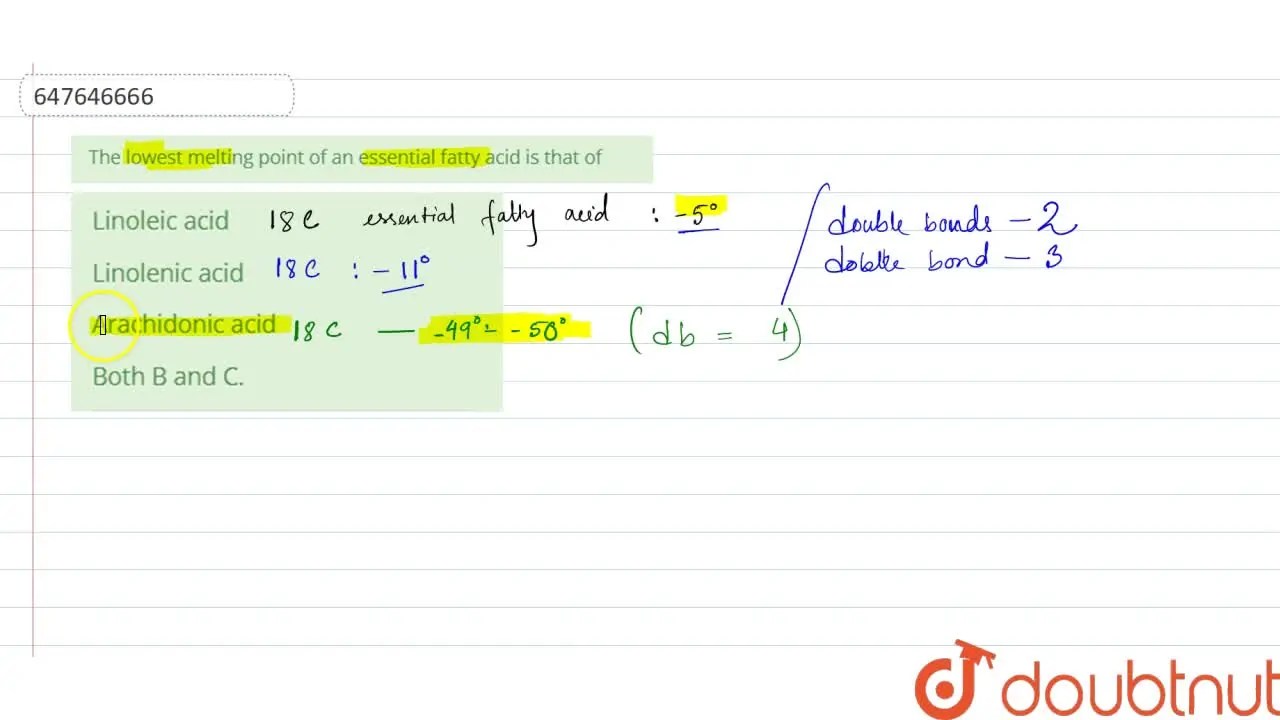 647646666
The lowest melting point of an essential fatty acid is that of
Linoleic acid 18C essential fatty acid : -5° double bonds - 2
Linolenic acid 18C : -11° dobtle bond - 3
Arachidonic acid 18C — -49° - -50° (db = 4)
Both B and C.
doubtnut